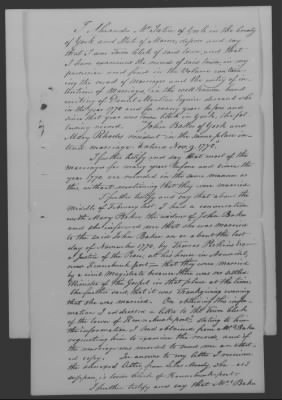 I, Alexander McIntire of York in the County
of York and State of Maine, depose and say
that I am Town Clerk of said town, and that
I have examined the records of said town, in my
possession and find in the Volume contain-
ing the record of Marriages and the entry of in-
tentions of Marriage in the well known hand
writing of Daniel Moulton Esquire deceased who
in the year 1770 & for many years before and
since that year was town Clerk in York, the fol-
lowing record. John Baker of York and
Mary Rhodes resident in the same place in-
tend marriage Entered Nov. 9. 1770.
I further testify and say that most of the
marriages for many years before and since the
year 1770 are recorded in the same manner as
this without mentioning that they were married.
I further testify and say that about the
middle of February last I had a conversation
with Mary Baker the widow of John Baker
and she informed me that she was married
to the said John Baker on or about the last
day of November 1770, by Thomas Perkins
a Justice of the Peace, at his house in Arundel,
now Kennebunk-port — that they were married
by a civil Magistrate because there was no settled
Minister of the Gospel in that place at the time.
She further said that it was Thanksgiving evening
that she was married. On obtaining this infor-
mation I addressed a letter to the town Clerk
of the town of Kennebunk-port, stating to him
the information I had obtained from Mrs. Baker
requesting him to examine the record, and if
the marriage was recorded to send me an attest-
ed copy. In answer to my letter I received
the annexed letter from Silas Moody, who is I
suppose, is town Clerk of Kennebunk-port.
I further testify and say that Mrs. Baker